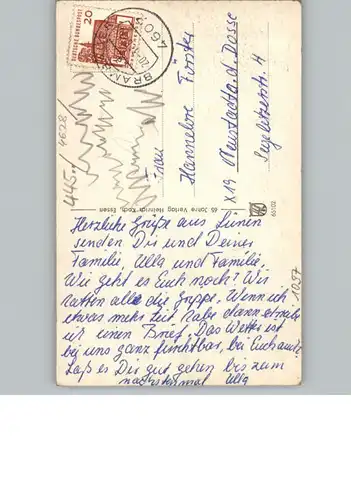 20
DEUTSCHE BUNDESPOST
4628
445
Frau
Hannelore Förster
X19 Neustadt a. d. Dosse
Segeletzerstr. 4
65 Jahre Verlag Heinrich Koch, Essen
Herzliche Grüße aus Lünen
senden Dir und Deiner
Familie, Ulla und Familie.
Wie geht es Euch noch? Wir
hatten alle die Grippe. Wenn ich
etwas mehr Zeit habe dann schreibe
ich einen Brief. Das Wetter ist
bei uns ganz furchtbar, bei Euch auch?
Laß es Dir gut gehen bis zum
nächstenmal Ulla
1097